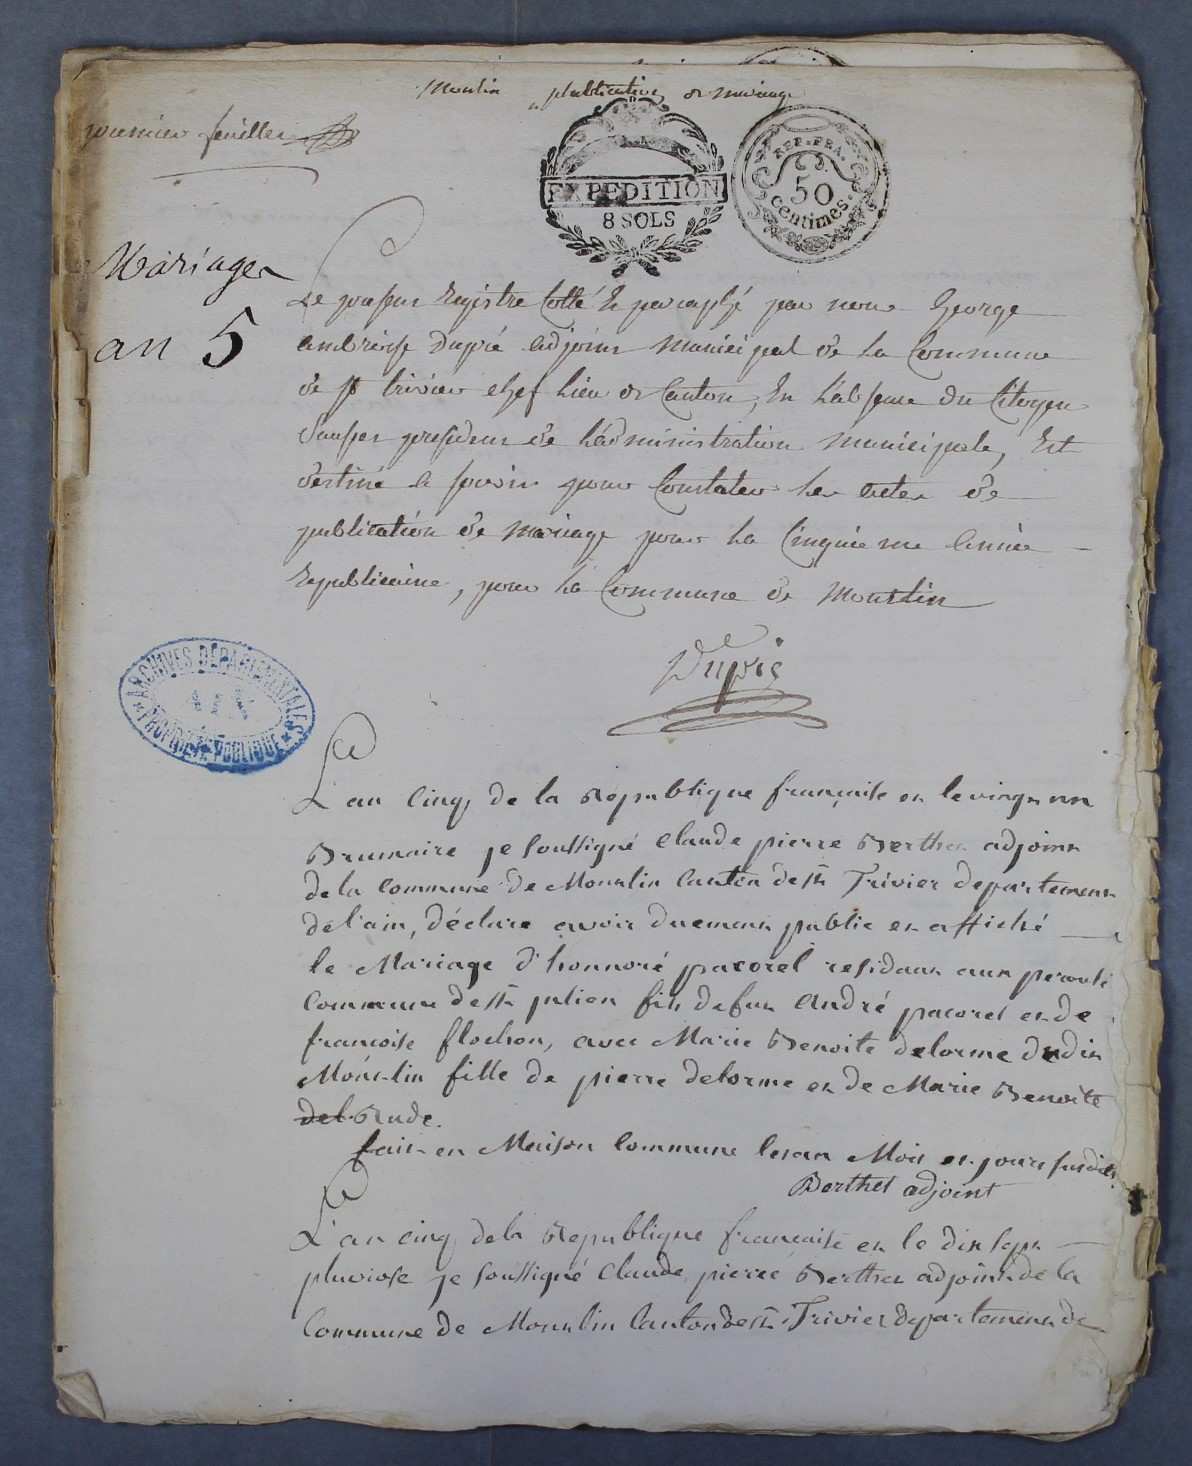 Moulin publication de mariage
premier feuillet
EXPEDITION
8 SOLS
REP. FRA.
50
centimes.
Mariages
an 5
Le present Registre Cotté et paraphé par nous George
ambroise Dupré adjoint municipal de la Commune
de st trivier chef lieu de Canton, En l'absence du Citoyen
president de l'administration municipale, Est
destiné a servir pour Constater les actes de
publication de mariage pour la Cinquieme année
Republicaine, pour la Commune de Montlin
Dupré
ARCHIVES DÉPARTEMENTALES
AIN
PROPRIÉTÉ PUBLIQUE
L'an cinq de la République française et le vingt un
Brumaire je soussigné Claude pierre Berthet adjoint
de la commune de Mounlin canton de st Trivier departement
de l'ain, déclare avoir duemant publié et affiché
le Mariage d'honnoré pacorel residant aux
commune de st julien fils de fut André pacorel et de
francoise flochon, avec Marie Benoite delorme dudit
Mounlin fille de pierre delorme et de Marie Benoite
del Rude.
fait en Maison commune les an Mois et jours susdits
Berthet adjoint
L'an cinq de la République française et le dix sept
pluviose je soussigné Claude pierre Berthet adjoint de la
Commune de Mounlin Canton de st Trivier departement de